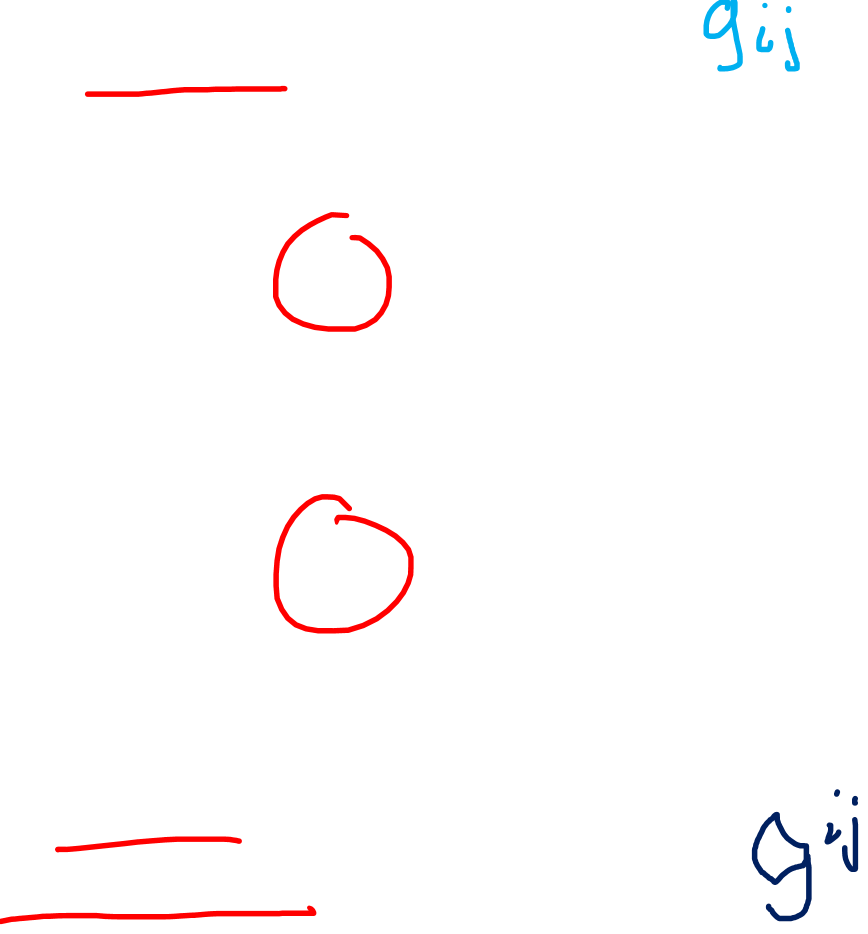 gᵢⱼ
gⁱʲ